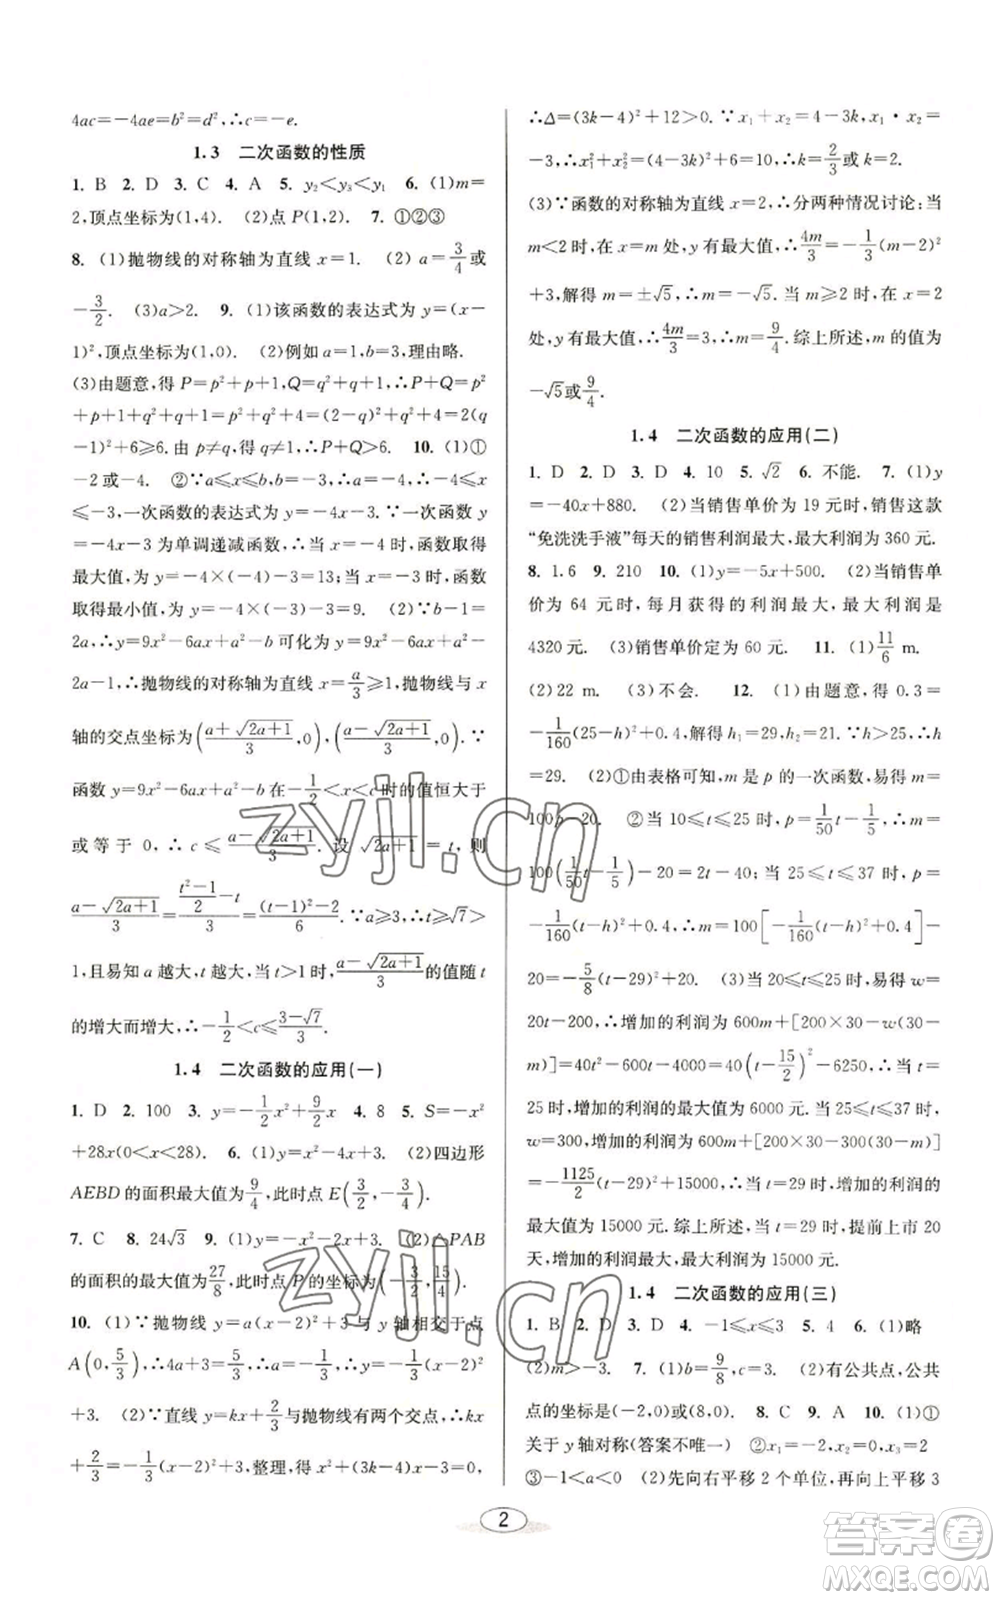 4ac=-4ae=b²=d²,∴c=-e.
1.3 二次函数的性质
1. B 2. D 3. C 4. A 5. y₂<y₃<y₁ 6. (1)m=
2,顶点坐标为(1,4). (2)点 P(1,2). 7. ①②③
8. (1)抛物线的对称轴为直线 x=1. (2) a=3/4或
-3/2. (3)a>2. 9. (1)该函数的表达式为 y=(x-
1)²,顶点坐标为(1,0). (2)例如 a=1,b=3,理由略.
(3)由题意,得 P=p²+p+1,Q=q²+q+1,∴P+Q=p²
+p+1+q²+q+1=p²+q²+4=(2-q)²+q²+4=2(q
-1)²+6≥6.由 p≠q,得 q≠1,∴P+Q>6. 10. (1)①
-2或-4. ②∵a≤x≤b,b=a+3,∴-4≤x
≤-3,一次函数的表达式为 y=-4x-3.∵一次函数 y
=-4x-3为单调递减函数,∴当 x=-4时,函数取得
最大值,为 y=-4×(-4)-3=13;当 x=-3时,函数
取得最小值,为 y=-4×(-3)-3=9. (2)∵b-1=
2a,∴y=9x²-6ax+a²-b 可化为 y=9x²-6ax+a²-
2a-1,∴抛物线的对称轴为直线 x=a/3≥1,抛物线与 x
轴的交点坐标为((a+√(2a+1))/3,0),((a-√(2a+1))/3,0).∵
函数 y=9x²-6ax+a²-b在-1/2<x<c时的值恒大于
或等于 0,∴c≤(a-√(2a+1))/3. 设 √(2a+1)=t,则
(a-√(2a+1))/3=((t²-1)/2-t)/3=((t-1)²-2)/6.∵a≥3,∴t≥√7>
1,且易知 a 越大,t 越大,当 t>1 时,(a-√(2a+1))/3的值随 t
的增大而增大,∴-1/2<c≤(3-√7)/3.
1.4 二次函数的应用(一)
1. D 2. 100 3. y=-1/2x²+9/2x 4. 8 5. S=-x²
+28x(0<x<28). 6. (1)y=x²-4x+3. (2)四边形
AEBD 的面积最大值为9/4,此时点 E(3/2,-3/4).
7. C 8. 24√3 9. (1)y=-x²-2x+3. (2)△PAB
的面积的最大值为27/8,此时点 P 的坐标为(-3/2,15/4).
10. (1)∵抛物线 y=a(x-2)²+3 与 y 轴相交于点
A(0,5/3),∴4a+3=5/3,∴a=-1/3,∴y=-1/3(x-2)²
+3. (2)∵直线 y=kx+2/3与抛物线有两个交点,∴kx
+2/3=-1/3(x-2)²+3,整理,得 x²+(3k-4)x-3=0,
∴Δ=(3k-4)²+12>0.∵x₁+x₂=4-3k,x₁·x₂=
-3,∴x₁²+x₂²=(4-3k)²+6=10,∴k=2/3或 k=2.
(3)∵函数的对称轴为直线 x=2,∴分两种情况讨论:当
m<2时,在 x=m 处,y 有最大值,∴4m/3=-1/3(m-2)²
+3,解得 m=±√5,∴m=-√5.当 m≥2时,在 x=2
处,y 有最大值,∴4m/3=3,∴m=9/4.综上所述,m 的值为
-√5或9/4.
1.4 二次函数的应用(二)
1. D 2. D 3. D 4. 10 5. √2 6. 不能. 7. (1)y
=-40x+880. (2)当销售单价为 19 元时,销售这款
“免洗洗手液”每天的销售利润最大,最大利润为 360元.
8. 1.6 9. 210 10. (1)y=-5x+500. (2)当销售单
价为 64 元时,每月获得的利润最大,最大利润是
4320元. (3)销售单价定为 60 元. 11. (1)11/6 m.
(2)22 m. (3)不会. 12. (1)由题意,得 0.3=
-1/160(25-h)²+0.4,解得 h₁=29,h₂=21.∵h>25,∴h
=29. (2)①由表格可知,m 是 p 的一次函数,易得 m=
100p-20. ②当 10≤t≤25时,p=1/50t-1/5,∴m=
100(1/50t-1/5)-20=2t-40;当 25≤t≤37 时,p=
-1/160(t-h)²+0.4,∴m=100[-1/160(t-h)²+0.4]-
20=-5/8(t-29)²+20. (3)当 20≤t≤25时,易得 w=
20t-200,∴增加的利润为 600m+[200×30-w(30-
m)]=40t²-600t-4000=40(t-15/2)²-6250,∴当 t=
25时,增加的利润的最大值为 6000元.当 25≤t≤37时,
w=300,增加的利润为 600m+[200×30-300(30-m)]
=-1125/2(t-29)²+15000,∴当 t=29 时,增加的利润的
最大值为 15000 元.综上所述,当 t=29时,提前上市 20
天,增加的利润最大,最大利润为 15000 元.
1.4 二次函数的应用(三)
1. B 2. D 3. D 4. -1≤x≤3 5. 4 6. (1)略
(2)m>-3. 7. (1)b=9/8,c=3. (2)有公共点,公共
点的坐标是(-2,0)或(8,0). 8. C 9. A 10. (1)①
关于 y 轴对称(答案不唯一) ②x₁=-2,x₂=2
③-1<a<0 (2)先向右平移 2 个单位,再向上平移 3
2
zyjl.cn
zyjl.cn
答案圈
MXQE.COM